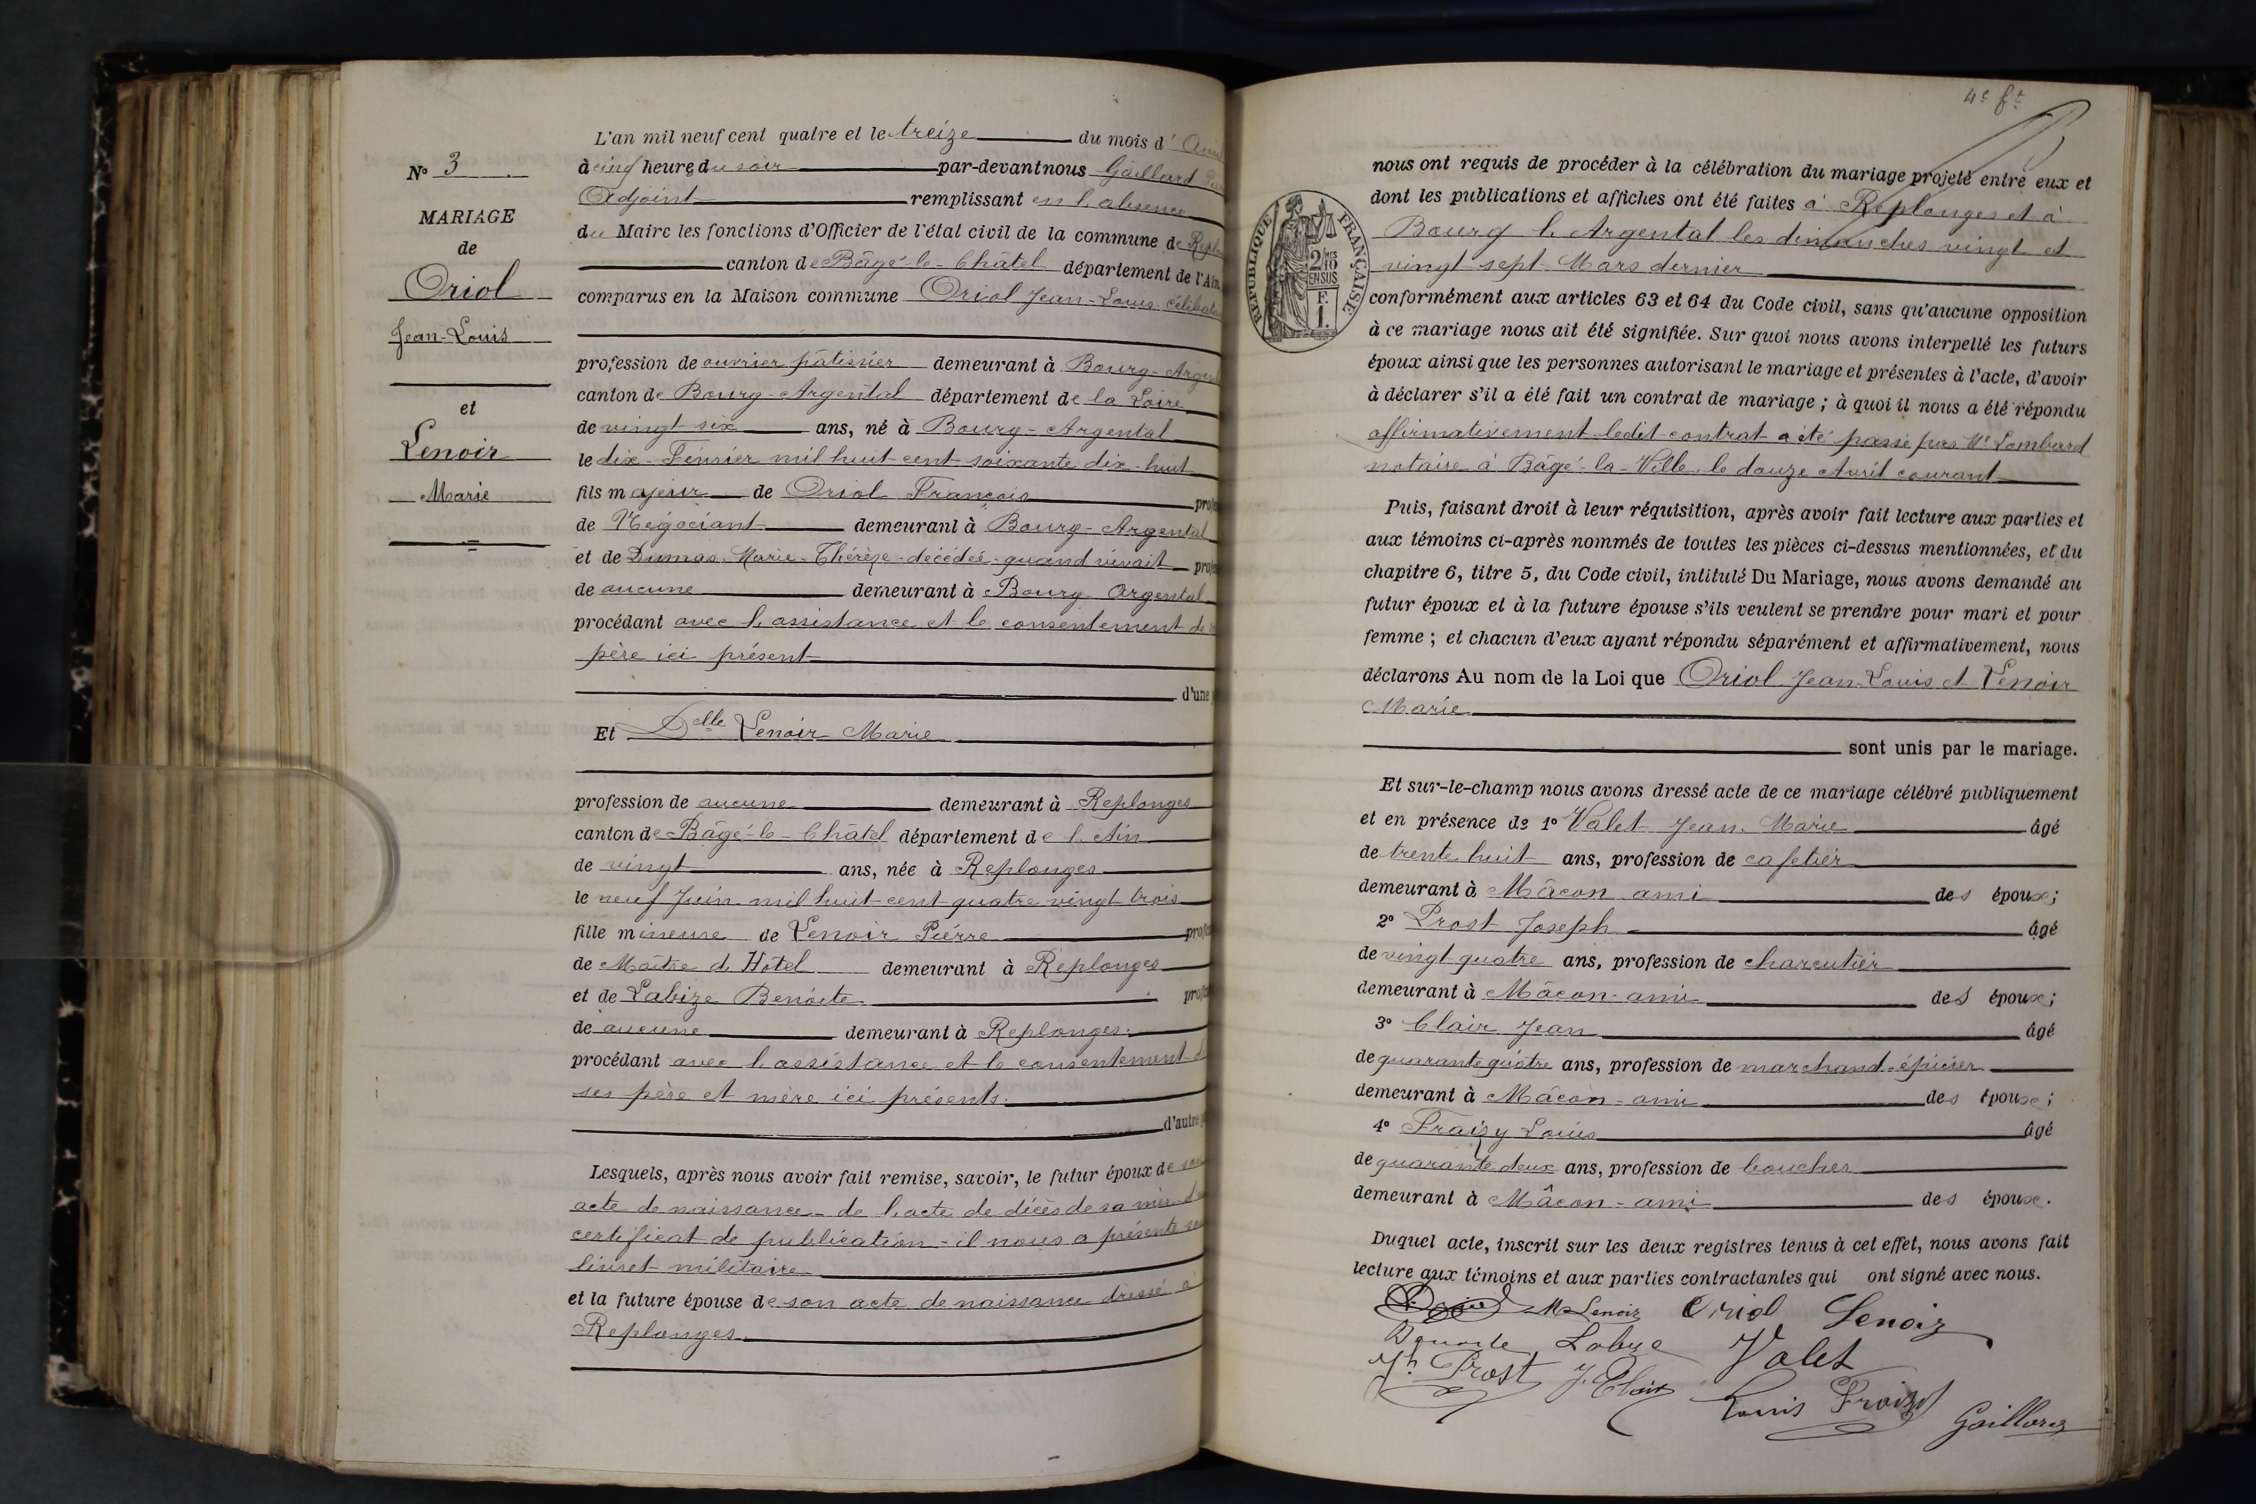 N° 3
MARIAGE
de
Oriol
Jean-Louis
et
Lenoir
Marie
L'an mil neuf cent quatre et le treize du mois d'
à cinq heures du soir par-devant nous Gaillard
Adjoint remplissant en l'absence
du Maire les fonctions d'Officier de l'état civil de la commune de
canton de Bâgé-le-Châtel département de l'Ain
comparus en la Maison commune Oriol Jean-Louis
profession de ouvrier pâtissier demeurant à Bourg-
canton de Bourg-Argental département de la Loire
de vingt six ans, né à Bourg-Argental
le dix Février mil huit cent soixante dix-huit
fils majeur de Oriol François
de Négociant demeurant à Bourg-Argental
et de Dumas Marie-Thérèze-décédée-quand vivait
de aucune demeurant à Bourg Argental
procédant avec l'assistance et le consentement de
père ici présent
d'une
Et Delle Lenoir Marie
profession de aucune demeurant à Replonges
canton de Bâgé-le-Châtel département de l'Ain
de vingt ans, née à Replonges
le neuf Juin mil huit cent quatre vingt trois
fille mineure de Lenoir Pierre
de Maître d'Hôtel demeurant à Replonges
et de Labize Benoite
de aucune demeurant à Replonges
procédant avec l'assistance et le consentement
ses père et mère ici présents
d'autre
Lesquels, après nous avoir fait remise, savoir, le futur époux de son
acte de naissance - de l'acte de décès de sa mère
certificat de publication - il nous a présenté
livret militaire
et la future épouse de son acte de naissance dressé a
Replonges
4e ft
RÉPUBLIQUE FRANÇAISE
2/10
EN SUS
F.
1.
nous ont requis de procéder à la célébration du mariage projeté entre eux et
dont les publications et affiches ont été faites à Replonges et à
Bourg l'Argental les dimanches vingt et
vingt sept Mars dernier
conformément aux articles 63 et 64 du Code civil, sans qu'aucune opposition
à ce mariage nous ait été signifiée. Sur quoi nous avons interpellé les futurs
époux ainsi que les personnes autorisant le mariage et présentes à l'acte, d'avoir
à déclarer s'il a été fait un contrat de mariage ; à quoi il nous a été répondu
affirmativement ledit contrat a été passé par Me Lombard
notaire à Bâgé-la-Ville le douze Avril courant
Puis, faisant droit à leur réquisition, après avoir fait lecture aux parties et
aux témoins ci-après nommés de toutes les pièces ci-dessus mentionnées, et du
chapitre 6, titre 5, du Code civil, intitulé Du Mariage, nous avons demandé au
futur époux et à la future épouse s'ils veulent se prendre pour mari et pour
femme ; et chacun d'eux ayant répondu séparément et affirmativement, nous
déclarons Au nom de la Loi que Oriol Jean-Louis et Lenoir
Marie
sont unis par le mariage.
Et sur-le-champ nous avons dressé acte de ce mariage célébré publiquement
et en présence de 1° Valet Jean-Marie âgé
de trente huit ans, profession de cafetier
demeurant à Mâcon ami des époux ;
2° Prost Joseph âgé
de vingt quatre ans, profession de charcutier
demeurant à Mâcon-ami des époux ;
3° Clair Jean âgé
de quarante quatre ans, profession de marchand épicier
demeurant à Mâcon-ami des époux ;
4° Fraizy Louis âgé
de quarante deux ans, profession de boucher
demeurant à Mâcon-ami des époux.
Duquel acte, inscrit sur les deux registres tenus à cet effet, nous avons fait
lecture aux témoins et aux parties contractantes qui ont signé avec nous.
M Lenoir Oriol Lenoir
Valet
Prost J. Clair
Louis Fraizy Gaillard